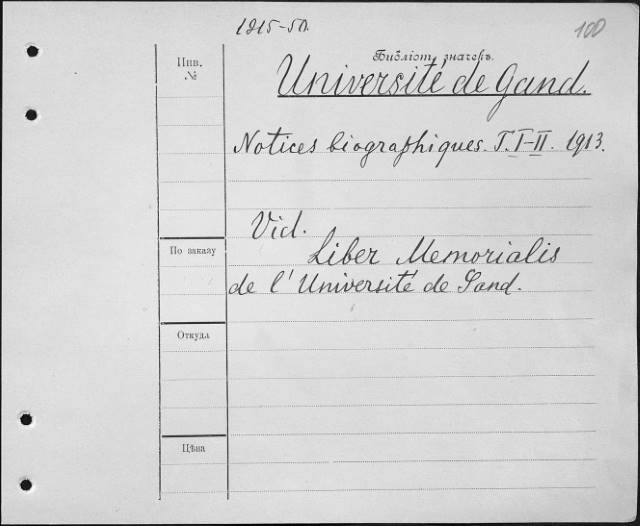 1915-50.
100
Библіот. значекъ.
Инв.
№
Université de Gand.
Notices biographiques. T. I-II. 1913.
Vid.
По заказу
Liber Memorialis
de l'Université de Gand.
Откуда
Цѣна